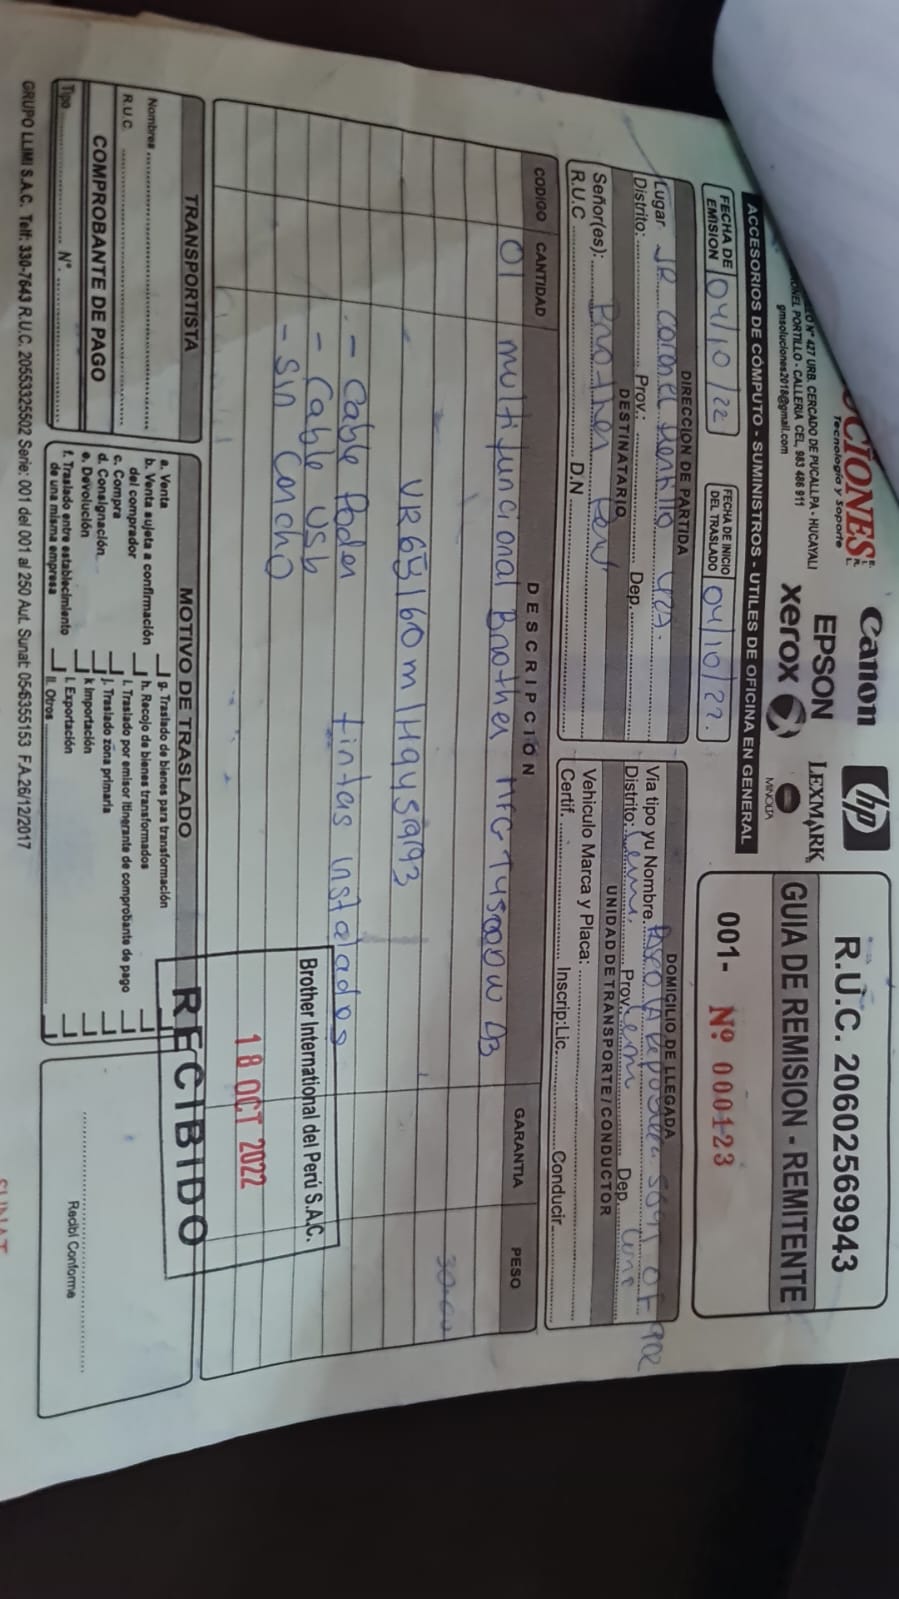 OCIONES E.I.R.L.
Tecnología y Soporte
N° 427 URB. CERCADO DE PUCALLPA - HUCAYALI
PORTILLO - CALLERIA CEL. 983 486 911
gmsoluciones2018@gmail.com
Canon
hp
EPSON
LEXMARK
xerox
MINOLTA
ACCESORIOS DE CÓMPUTO - SUMINISTROS - UTILES DE OFICINA EN GENERAL
R.U.C. 20602569943
GUIA DE REMISION - REMITENTE
001- Nº 000123
FECHA DE EMISION 04/10/22
FECHA DE INICIO DEL TRASLADO 04/10/22.
DIRECCION DE PARTIDA
Lugar JR coronel
Distrito: Prov.: Dep.
DOMICILIO DE LLEGADA
Vía tipo yu Nombre. OF 902
Distrito: Prov. Dep.
DESTINATARIO
Señor(es): Brother Perú
R.U.C D.N
UNIDAD DE TRANSPORTE / CONDUCTOR
Vehiculo Marca y Placa:
Certif. Inscrip:Lic. Conducir
CODIGO CANTIDAD DESCRIPCIÓN GARANTIA PESO
01 multifuncional Brother
- Cable Poder tintas instalados
- Cable usb
- Sin
Brother International del Perú S.A.C.
18 OCT 2022
RECIBIDO
TRANSPORTISTA
Nombres
R.U.C.
COMPROBANTE DE PAGO
Tipo N°.
MOTIVO DE TRASLADO
a. Venta
b. Venta sujeta a confirmación
del comprador
c. Compra
d. Consignación
e. Devolución
f. Traslado entre establecimiento
de una misma empresa
g. Traslado de bienes para transformación
h. Recojo de bienes transformados
i. Traslado por emisor itinerante de comprobante de pago
j. Traslado zona primaria
k Importación
l. Exportación
ll. Otros
Recibí Conforme
GRUPO LLIMI S.A.C. Telf: 330-7643 R.U.C. 20553325502 Serie: 001 del 001 al 250 Aut. Sunat: 05-6355153 F.A.26/12/2017
SUNAT